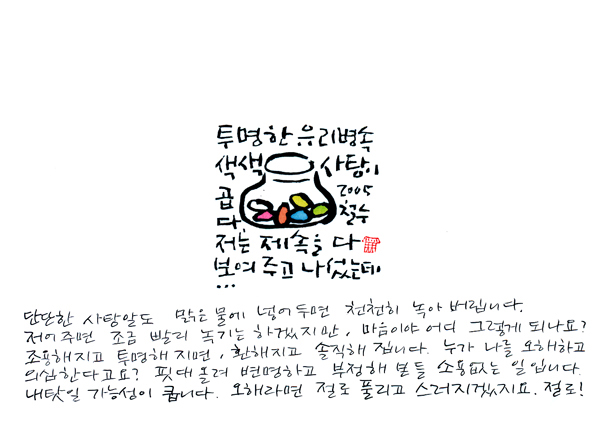 투명한 유리병속
색색 사탕이
곱 2005
다 철수
저는 제 속을 다
보여 주고 나섰는데
...
단단한 사탕알도 맑은 물에 넣어두면 천천히 녹아 버립니다.
저어주면 조금 빨리 녹기는 하겠지만, 마음이야 어디 그렇게 되나요?
조용해지고 투명해지면, 환해지고 솔직해 집니다. 누가 나를 오해하고
의심한다고요? 핏대올려 변명하고 부정해 본들 소용없는 일입니다.
내탓일 가능성이 큽니다. 오해라면 절로 풀리고 스러지겠지요. 절로!